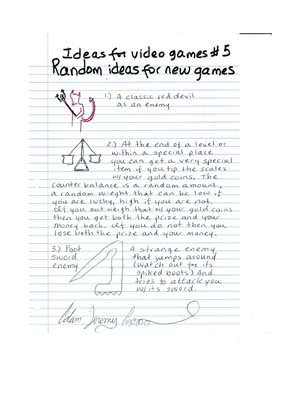 Ideas for video games #5
Random ideas for new games
1.) A classic red devil
as an enemy
2.) At the end of a level or
within a special place
you can get a very special
item if you tip the scales
w/ your gold coins. The
counter balance is a random amount,
a random weight that can be low if
you are lucky, high if you are not.
If you out weigh that w/ your gold coins
then you get both the prize and your
money back. If you do not then you
lose both the prize and your money.
3.) Foot
Sword
enemy
A strange enemy
that jumps around
(watch out for its
spiked boots.) And
tries to attack you
w/ its sword.
Adam Jeremy